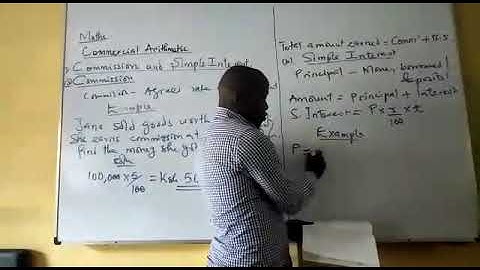 Maths
Commercial Arithmetic
Commission and Simple Interest
Commission
Commission - Agreed rate
Example
Jane sold goods worth
She earns commission at
Find the money she g
soln
100,000 × 5/100 = Ksh 50
Total amount earned = Comm + B.S
Simple Interest
Principal - Money borrowed/
deposited
Amount = Principal + Interest
S. Interest = P × r/100 × t
Example
P =